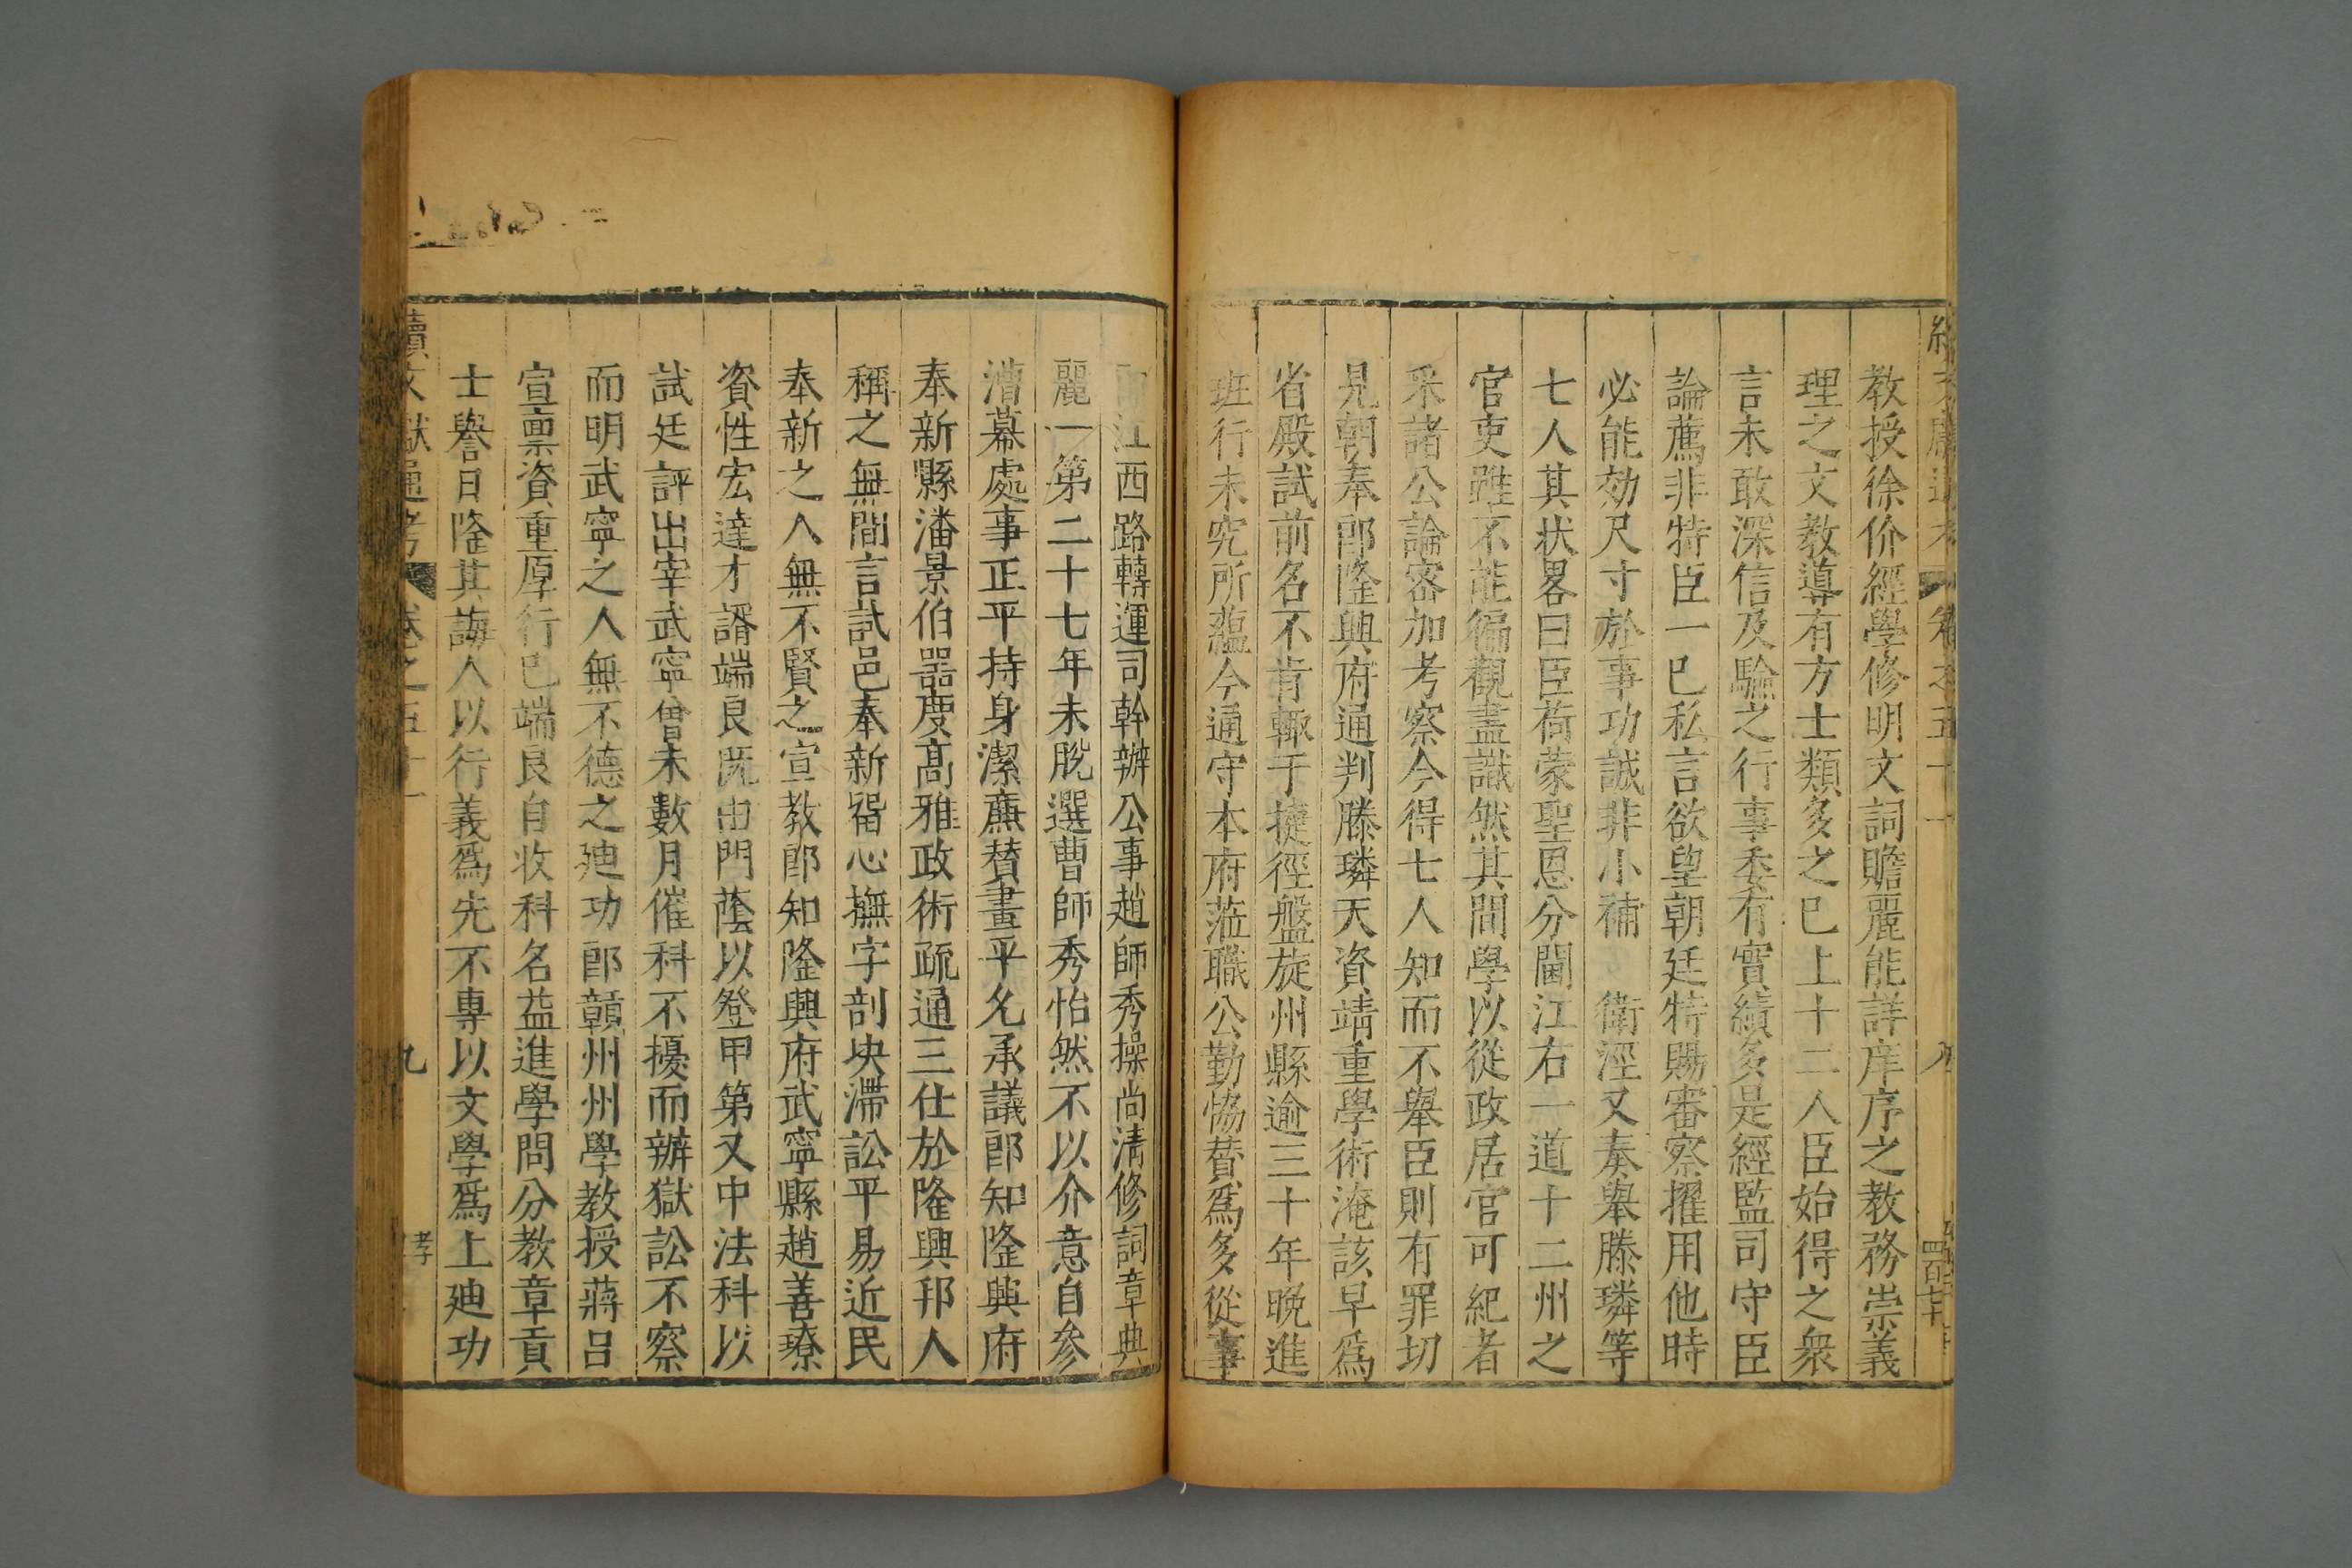 教授徐价經學修明文詞贍麗能詳庠序之教務崇義
理之文教導有方士類多之巳上十二人臣始得之衆
言未敢深信及驗之行事委有實績多是經監司守臣
論薦非特臣一巳私言欲望朝廷特賜審察擢用他時
必能効尺寸於事功誠非小補 衛涇又奏舉滕璘等
七人其狀畧曰臣荷蒙聖恩分閫江右一道十二州之
官吏雖不能徧觀盡識然其間學以從政居官可紀者
采諸公論密加考察今得七人知而不舉臣則有罪切
見朝奉郎隆興府通判滕璘天資靖重學術淹該早爲
省殿試前名不肯輙干捷徑盤旋州縣逾三十年晩進
班行未究所蘊今通守本府涖職公勤恊賛爲多從事
江西路轉運司幹辦公事趙師秀操尚清修詞章典
麗一第二十七年未脫選曹師秀怡然不以介意自參
漕幕處事正平持身潔廉賛畫平允承議郎知隆興府
奉新縣潘景伯噐度髙雅政術疏通三仕於隆興邦人
稱之無間言試邑奉新留心撫字剖决滯訟平易近民
奉新之人無不賢之宣教郎知隆興府武寧縣趙善璙
資性宏達才諝端良旣由門蔭以登甲第又中法科以
試廷評出宰武寧曾未數月催科不擾而辦獄訟不察
而明武寧之人無不德之廸功郎贑州州學教授蔣呂
宣禀資重厚行巳端良自收科名益進學問分教章貢
士譽日隆其誨人以行義爲先不專以文學爲上廸功
續文獻通考 卷之五十一
九
孝